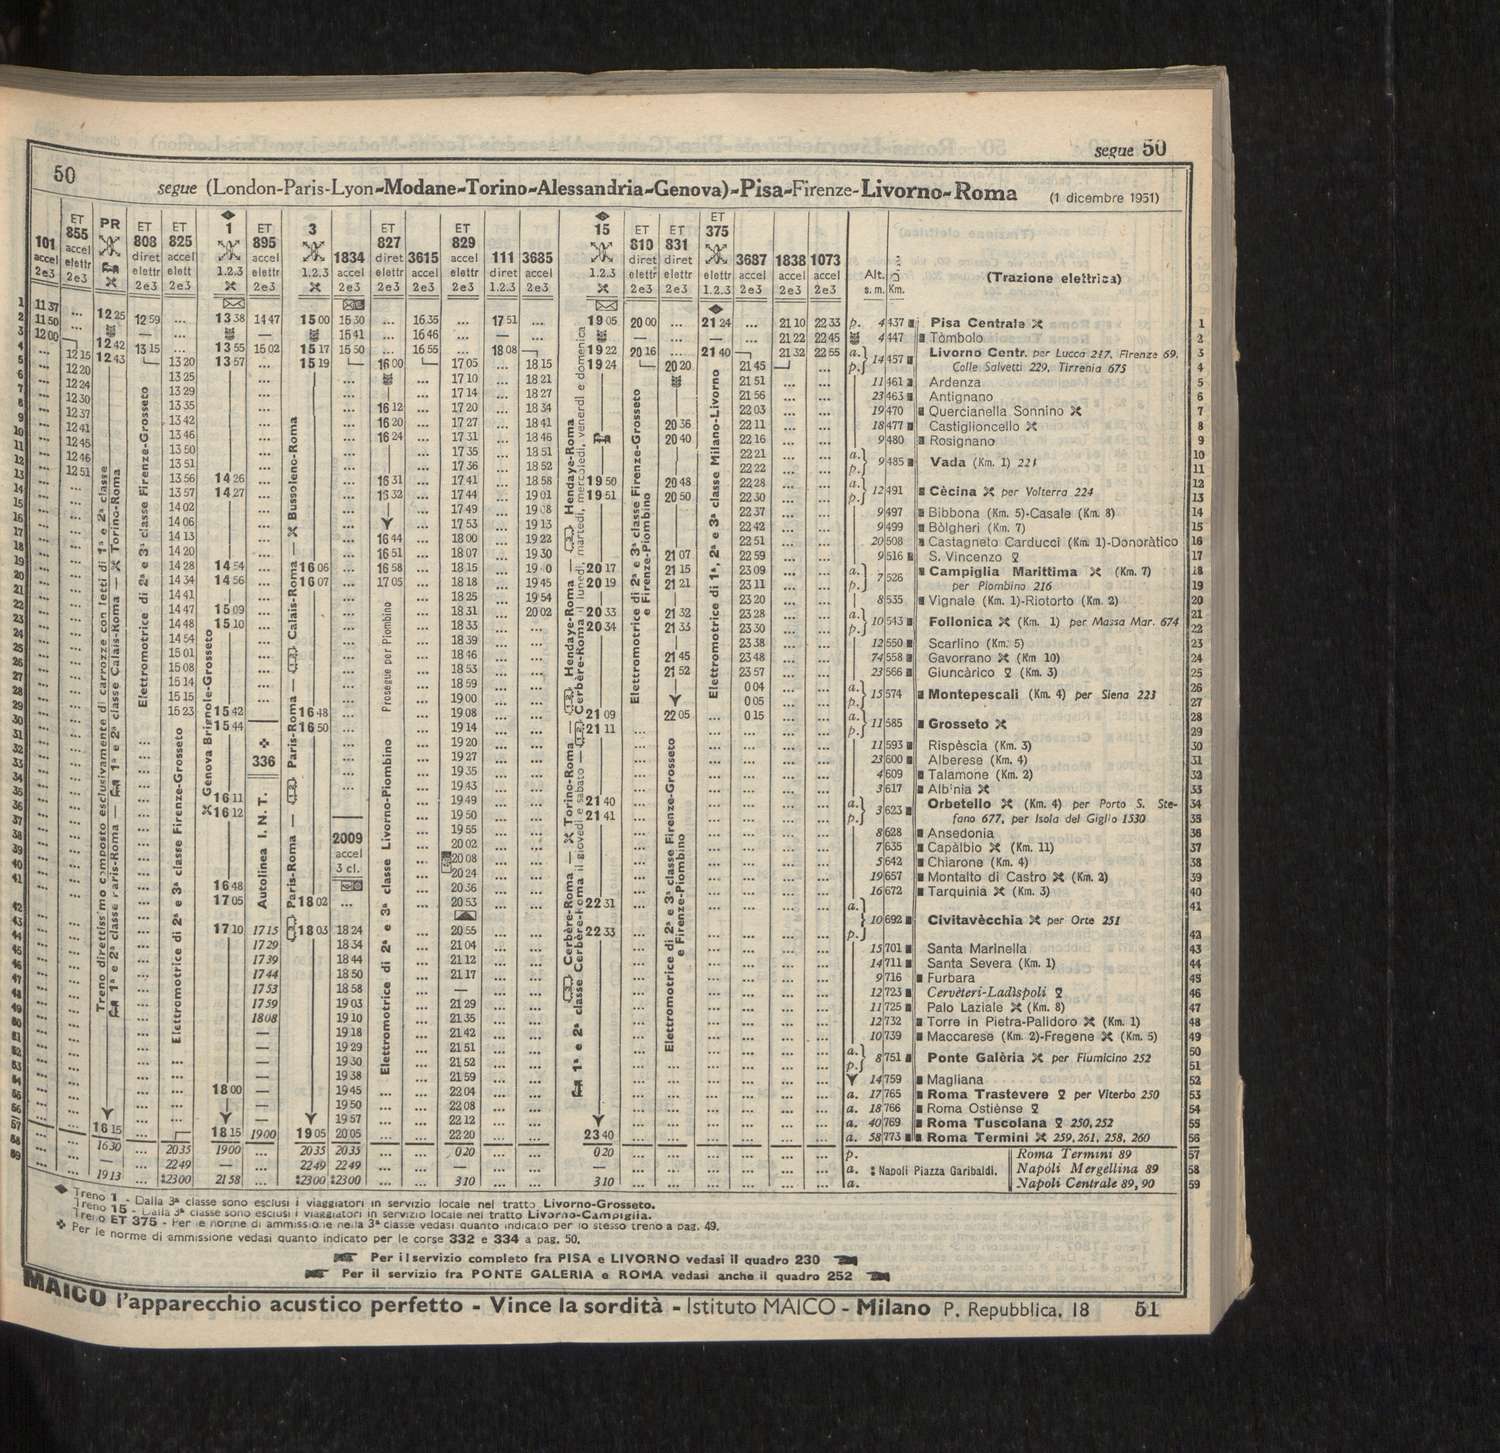 segue 50
50
segue (London-Paris-Lyon-Modane-Torino-Alessandria-Genova)-Pisa-Firenze-Livorno-Roma (1 dicembre 1951)
101 accel 2e3
ET 855 accel elettr 2e3
PR
ET 808 diret elettr 2e3
ET 825 accel elett 2e3
1 1.2.3
ET 895 accel elettr 2e3
3 1.2.3
1834 accel 2e3
ET 827 diret elettr 2e3
3615 accel 2e3
ET 829 accel elettr 2e3
111 diret 1.2.3
3685 accel 2e3
15 1.2.3
ET 810 diret elettr 2e3
ET 831 diret elettr 2e3
ET 375 elettr 1.2.3
3687 accel 2e3
1838 accel 2e3
1073 accel 2e3
Alt. s.m. Km.
(Trazione elettrica)
11 37 12 25 12 59 13 38 14 47 15 00 15 30 16 35 17 51 19 05 20 00 21 24 21 10 22 33 p. 4 437 Pisa Centrale 1
11 50 15 41 16 46 21 22 22 45 4 447 Tòmbolo 2
12 00 12 42 13 15 13 55 15 02 15 17 15 50 16 55 18 08 19 22 20 16 21 40 21 32 22 55 a. 14 457 Livorno Centr. per Lucca 217, Firenze 69, 3
12 15 12 43 13 20 13 57 15 19 16 00 17 05 18 15 19 24 20 20 21 45 p. Colle Salvetti 229, Tirrenia 675 4
12 20 13 25 17 10 18 21 21 51 11 461 Ardenza 5
12 24 13 29 17 14 18 27 21 56 23 463 Antignano 6
12 30 13 35 16 12 17 20 18 34 22 03 19 470 Quercianella Sonnino 7
12 37 13 42 16 20 17 27 18 41 20 36 22 11 18 477 Castiglioncello 8
12 41 13 46 16 24 17 31 18 46 20 40 22 16 9 480 Rosignano 9
12 45 13 50 17 35 18 51 22 21 a. 10
12 46 13 51 17 36 18 52 22 22 p. 9 485 Vada (Km. 1) 221 11
12 51 13 56 14 26 16 31 17 41 18 58 19 50 20 48 22 28 a. 12
13 57 14 27 16 32 17 44 19 01 19 51 20 50 22 30 p. 12 491 Cècina per Volterra 224 13
14 02 17 49 19 08 22 37 9 497 Bibbona (Km. 5)-Casale (Km. 8) 14
14 06 17 53 19 13 22 42 9 499 Bòlgheri (Km. 7) 15
14 13 16 44 18 00 19 22 22 51 20 508 Castagneto Carducci (Km. 1)-Donoràtico 16
14 20 16 51 18 07 19 30 21 07 22 59 9 516 S. Vincenzo 17
14 28 14 54 16 06 16 58 18 15 20 17 21 15 23 09 a. 7 526 Campiglia Marittima (Km. 7) 18
14 34 14 56 16 07 17 05 18 18 19 45 20 19 21 21 23 11 p. per Piombino 216 19
14 41 18 25 19 54 23 20 8 535 Vignale (Km. 1)-Riotorto (Km. 2) 20
14 47 15 09 18 31 20 02 20 33 21 32 23 28 a. 21
14 48 15 10 18 33 20 34 21 33 23 30 p. 10 543 Follonica (Km. 1) per Massa Mar. 674 22
14 54 18 39 23 38 12 550 Scarlino (Km. 5) 23
15 01 18 46 21 45 23 48 74 558 Gavorrano (Km 10) 24
15 08 18 53 21 52 23 57 23 566 Giuncàrico (Km. 3) 25
15 14 18 59 0 04 a. 26
15 15 19 00 0 05 p. 15 574 Montepescali (Km. 4) per Siena 223 27
15 23 15 42 16 48 19 08 21 09 22 05 0 15 a. 28
15 44 16 50 19 14 21 11 p. 11 585 Grosseto 29
19 20 11 593 Rispèscia (Km. 3) 30
336 19 27 23 600 Alberese (Km. 4) 31
19 35 4 609 Talamone (Km. 2) 32
19 43 3 617 Alb'nia 33
16 11 19 49 21 40 a. 3 623 Orbetello (Km. 4) per Porto S. Ste- 34
16 12 19 50 21 41 p. fano 677, per Isola del Giglio 1530 35
19 55 8 628 Ansedonia 36
2009 accel 3 cl. 20 02 7 635 Capàlbio (Km. 11) 37
20 08 5 642 Chiarone (Km. 4) 38
20 24 19 657 Montalto di Castro (Km. 2) 39
16 48 20 36 16 672 Tarquinia (Km. 3) 40
17 05 18 02 20 53 22 31 a. 41
10 692 Civitavècchia per Orte 251
17 10 17 15 18 03 18 24 20 55 22 33 p. 42
17 29 18 34 21 04 15 701 Santa Marinella 43
17 39 18 44 21 12 14 711 Santa Severa (Km. 1) 44
17 44 18 50 21 17 9 716 Furbara 45
17 53 18 58 12 723 Cervèteri-Ladìspoli 46
17 59 19 03 21 29 11 725 Palo Laziale (Km. 8) 47
18 08 19 10 21 35 12 732 Torre in Pietra-Palidoro (Km. 1) 48
19 18 21 42 10 739 Maccarese (Km. 2)-Fregene (Km. 5) 49
19 29 21 51 a. 50
19 30 21 52 p. 8 751 Ponte Galèria per Fiumicino 252 51
19 38 21 59 14 759 Magliana 52
18 00 19 45 22 04 a. 17 765 Roma Trastevere per Viterbo 250 53
19 50 22 08 a. 18 766 Roma Ostiènse 54
19 57 22 12 a. 40 769 Roma Tuscolana 250, 252 55
16 15 18 15 19 00 19 05 20 05 22 20 23 40 a. 58 773 Roma Termini 259, 261, 258, 260 56
16 30 20 35 19 00 20 35 20 35 0 20 0 20 p. Roma Termini 89 57
22 49 22 49 22 49 a. ‡ Napoli Piazza Garibaldi. Napóli Mergellina 89 58
19 13 ‡23 00 21 58 ‡23 00 ‡23 00 3 10 3 10 a. Napoli Centrale 89, 90 59
Treno direttissimo composto esclusivamente di carrozze con letti di 1ª e 2ª classe
1ª e 2ª classe Paris-Roma — 1ª e 2ª classe Calais-Roma — Torino-Roma
Elettromotrice di 2ª e 3ª classe Firenze-Grosseto
Elettromotrice di 2ª e 3ª classe Firenze-Grosseto
Genova Brignole-Grosseto
Autolinea I. N. T.
Paris-Roma — Paris-Roma — Calais-Roma — Bussoleno-Roma
Prosegue per Piombino
Elettromotrice di 2ª e 3ª classe Livorno-Piombino
1ª e 2ª classe Cerbère-Roma — Torino-Roma — Hendaye-Roma — Hendaye-Roma
Cerbère-Roma il giovedì e sabato — Cerbère-Roma il lunedì, martedì, mercoledì, venerdì e domenica
Elettromotrice di 2ª e 3ª classe Firenze-Grosseto e Firenze-Piombino
Elettromotrice di 2ª e 3ª classe Firenze-Grosseto e Firenze-Piombino
Elettromotrice di 1ª, 2ª e 3ª classe Milano-Livorno
Treno 1 - Dalla 3ª classe sono esclusi i viaggiatori in servizio locale nel tratto Livorno-Grosseto.
Treno 15 - Dalla 3ª classe sono esclusi i viaggiatori in servizio locale nel tratto Livorno-Campiglia.
Treno ET 375 - Per le norme di ammissione nella 3ª classe vedasi quanto indicato per lo stesso treno a pag. 49.
Per le norme di ammissione vedasi quanto indicato per le corse 332 e 334 a pag. 50.
Per il servizio completo fra PISA e LIVORNO vedasi il quadro 230
Per il servizio fra PONTE GALERIA e ROMA vedasi anche il quadro 252
MAICO l'apparecchio acustico perfetto - Vince la sordità - Istituto MAICO - Milano P. Repubblica, 18 51